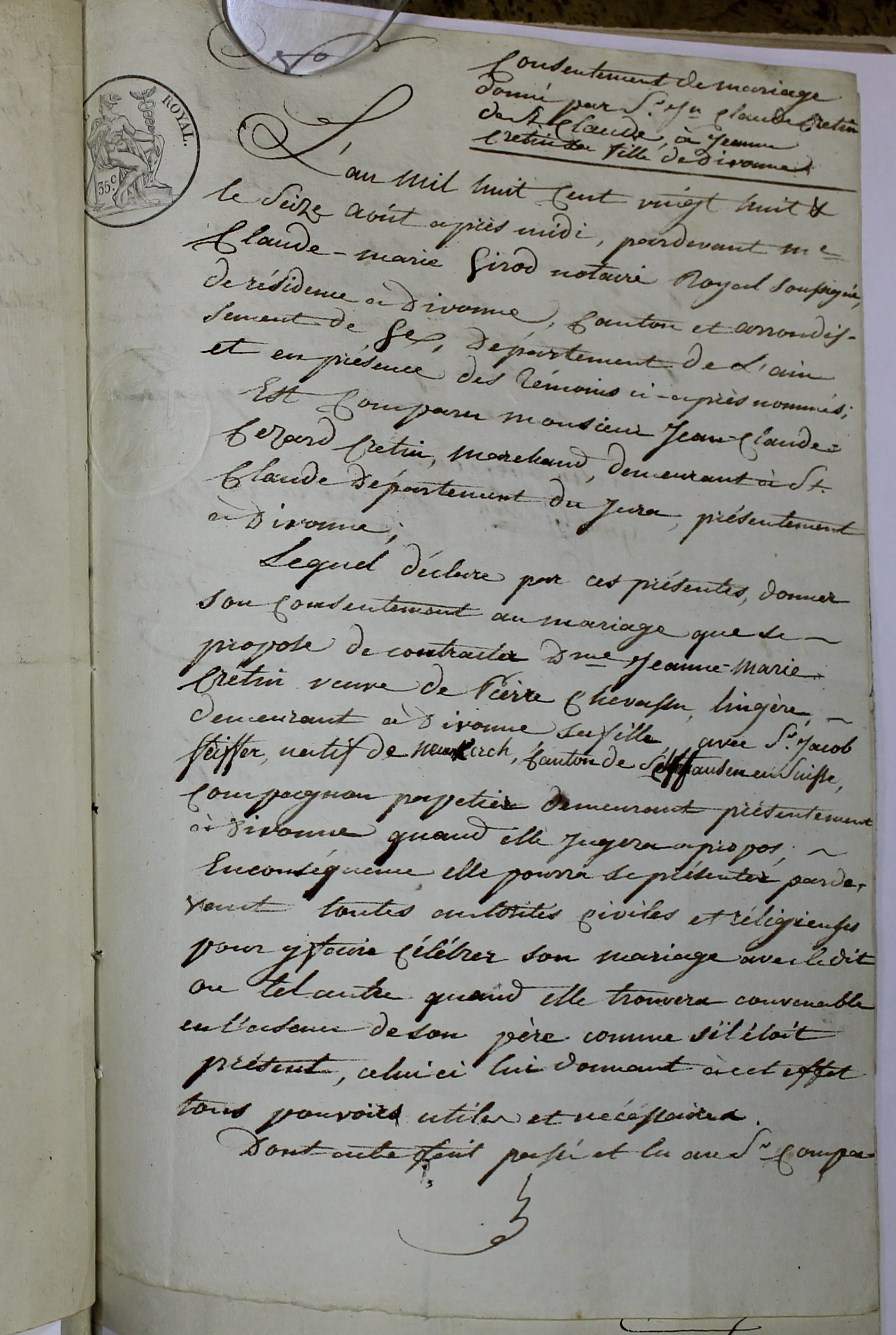 ROYAL.
35c
Consentement de mariage
donné par Sr. Jn Claude Cretin
de St Claude, à Jeanne
Cretin sa fille de Divonne
L'an mil huit cent vingt huit &
le seize août après midi, pardevant me
Claude-marie Girod notaire Royal soussigné,
de résidence à Divonne, Canton et arrondis-
sement de Gex, Département de L'ain
et en présence des témoins ci-après nommés;
Est Comparu monsieur Jean-Claude-
Cretin, marchand, demeurant à St.
Claude Département du Jura, présentement
à Divonne;
Lequel déclare par ces présentes, donner
son consentement au mariage que se
propose de contracter Dme Jeanne-Marie
Cretin veuve de Pierre Chevassu, lingère,
demeurant à Divonne sa fille, avec Sr. Jacob
natif de Canton de en Suisse,
Compagnon papetier demeurant présentement
à Divonne quand elle jugera apropos;
Enconséquence elle pourra se présenter parde-
vant toutes autorités civiles et réligieuses
pour y faire célébrer son mariage avec ledit
ou tel autre quand elle trouvera convenable
en l'absence de son père comme s'il était
présent, celui ci lui donnant à cet effet
tous pouvoirs utiles et nécessaires.
Dont acte fait passé et lu au Sr Compa